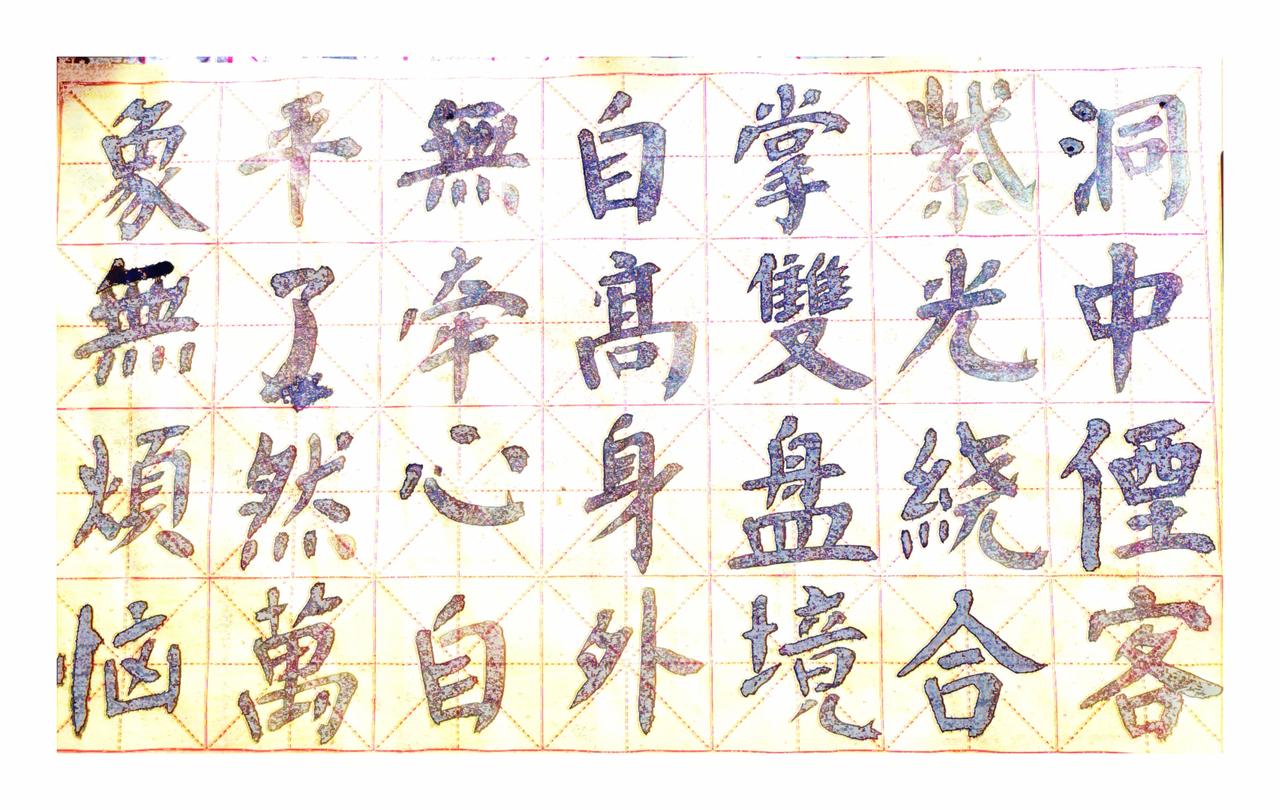 洞中僊客
紫光绕合
掌雙盘境
自髙身外
無牵心自
平了然萬
象無煩恼